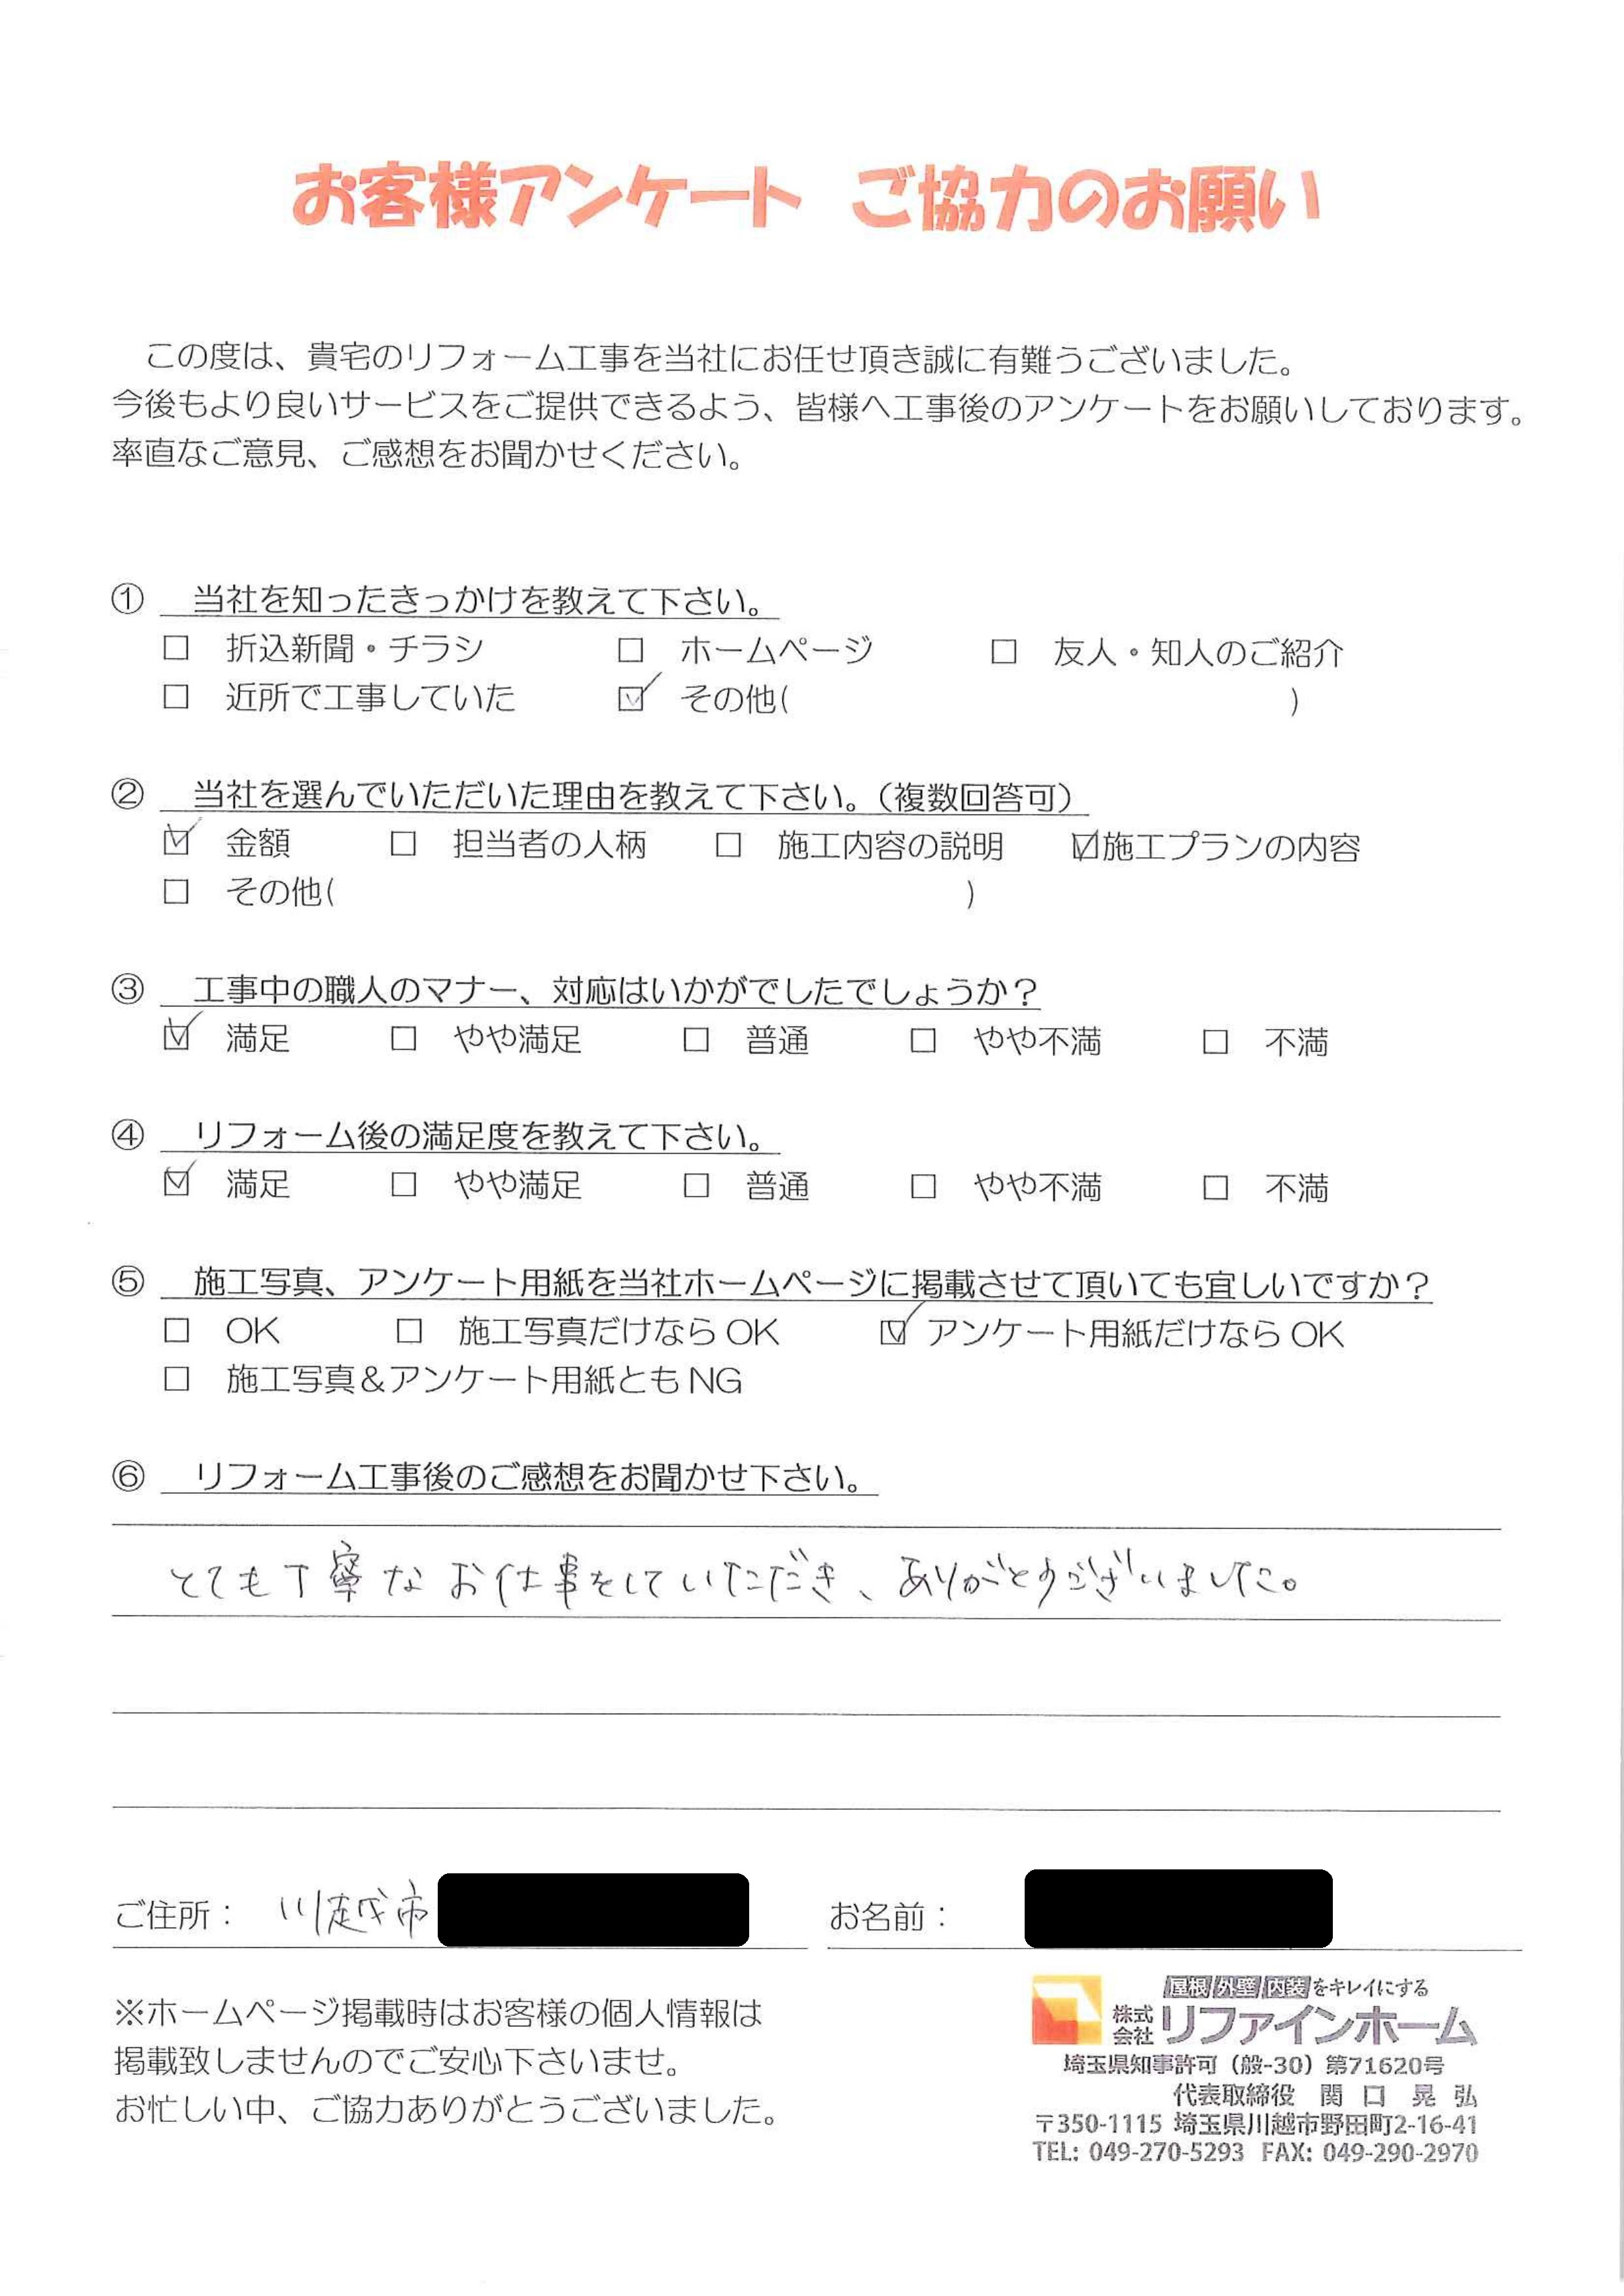 お客様アンケート ご協力のお願い
この度は、貴宅のリフォーム工事を当社にお任せ頂き誠に有難うございました。
今後もより良いサービスをご提供できるよう、皆様へ工事後のアンケートをお願いしております。
率直なご意見、ご感想をお聞かせください。
① 当社を知ったきっかけを教えて下さい。
□ 折込新聞・チラシ □ ホームページ □ 友人・知人のご紹介
□ 近所で工事していた ☑ その他( )
② 当社を選んでいただいた理由を教えて下さい。(複数回答可)
☑ 金額 □ 担当者の人柄 □ 施工内容の説明 ☑施工プランの内容
□ その他( )
③ 工事中の職人のマナー、対応はいかがでしたでしょうか？
☑ 満足 □ やや満足 □ 普通 □ やや不満 □ 不満
④ リフォーム後の満足度を教えて下さい。
☑ 満足 □ やや満足 □ 普通 □ やや不満 □ 不満
⑤ 施工写真、アンケート用紙を当社ホームページに掲載させて頂いても宜しいですか？
□ OK □ 施工写真だけなら OK ☑ アンケート用紙だけなら OK
□ 施工写真＆アンケート用紙とも NG
⑥ リフォーム工事後のご感想をお聞かせ下さい。
とても丁寧なお仕事をしていただき、ありがとうございました。
ご住所： 川越市 お名前：
※ホームページ掲載時はお客様の個人情報は
掲載致しませんのでご安心下さいませ。
お忙しい中、ご協力ありがとうございました。
屋根 外壁 内装 をキレイにする
株式会社 リファインホーム
埼玉県知事許可（般-30）第71620号
代表取締役 関口 晃弘
〒350-1115 埼玉県川越市野田町2-16-41
TEL: 049-270-5293 FAX: 049-290-2970